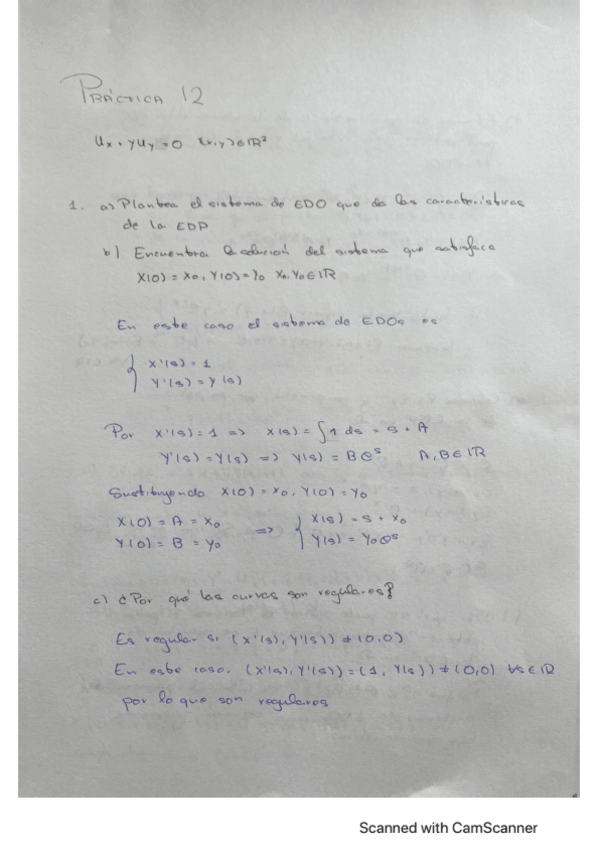 PRÁCTICA 12
Ux + yUy = 0 (x,y) ∈ IR²
1. a) Plantea el sistema de EDO que da las características
de la EDP
b) Encuentra la solución del sistema que satisface
X(0) = X₀, Y(0) = Y₀ X₀, Y₀ ∈ IR
En este caso el sistema de EDOs es
{ X'(s) = 1
Y'(s) = Y(s)
Por X'(s) = 1 => X(s) = ∫ 1 ds = s + A
Y'(s) = Y(s) => Y(s) = B e^s A, B ∈ IR
Sustituyendo X(0) = X₀, Y(0) = Y₀
X(0) = A = X₀ => { X(s) = s + X₀
Y(0) = B = Y₀ Y(s) = Y₀ e^s
c) ¿Por qué las curvas son regulares?
Es regular si (X'(s), Y'(s)) ≠ (0,0)
En este caso. (X'(s), Y'(s)) = (1, Y(s)) ≠ (0,0) ∀s ∈ IR
por lo que son regulares
Scanned with CamScanner